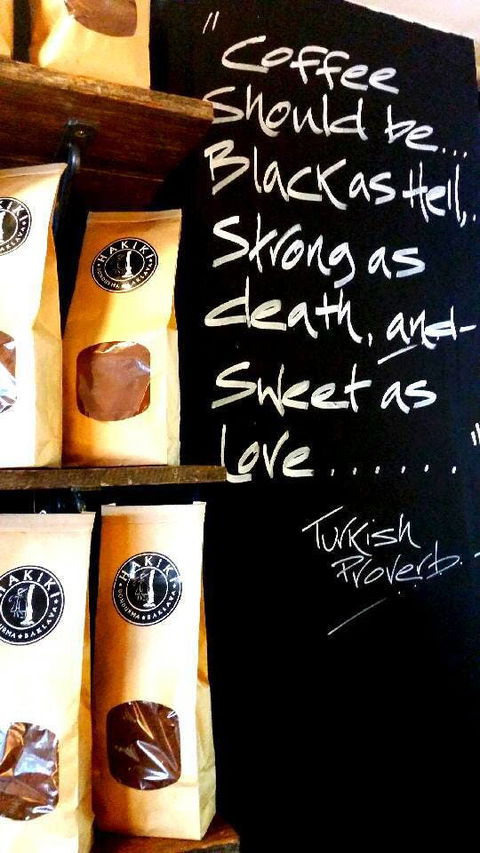 "Coffee
Should be...
Black as Hell,.
Strong as
death, and-
Sweet as
Love ......."
Turkish
Proverb.-
HAKIKI
HAKIKI
DONDURMA ★ BAKLAVA
HAKIKI
URMA ★ BAKLAVA
HAKIKI
DONDURMA ★ BAKLAVA